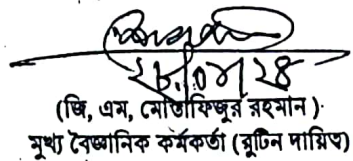 ২৮.০৮.২৪
(জি, এম, মোস্তাফিজুর রহমান)
মুখ্য বৈজ্ঞানিক কর্মকর্তা (রুটিন দায়িত্ব)